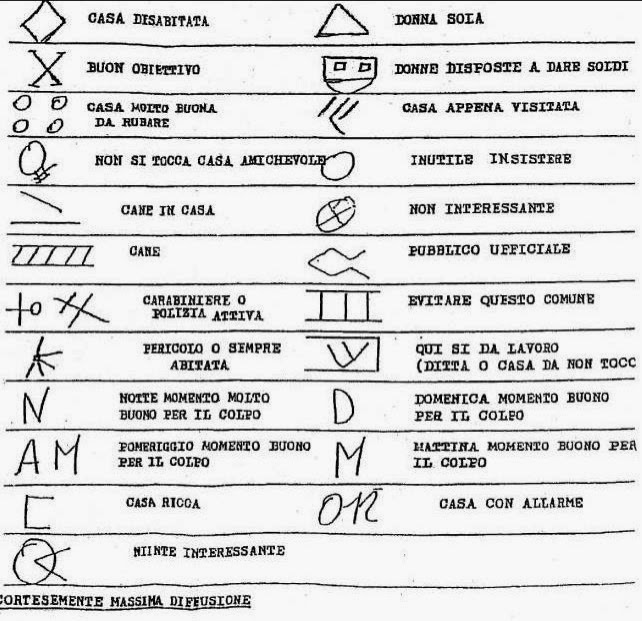 CASA DISABITATA
DONNA SOLA
BUON OBIETTIVO
DONNE DISPOSTE A DARE SOLDI
CASA MOLTO BUONA
DA RUBARE
CASA APPENA VISITATA
NON SI TOCCA CASA AMICHEVOLE
INUTILE INSISTERE
CANE IN CASA
NON INTERESSANTE
CANE
PUBBLICO UFFICIALE
CARABINIERE O
POLIZIA ATTIVA
EVITARE QUESTO COMUNE
PERICOLO O SEMPRE
ABITATA
QUI SI DA LAVORO
(DITTA O CASA DA NON TOCC
N
NOTTE MOMENTO MOLTO
BUONO PER IL COLPO
D
DOMENICA MOMENTO BUONO
PER IL COLPO
AM
POMERIGGIO MOMENTO BUONO
PER IL COLPO
M
MATTINA MOMENTO BUONO PER
IL COLPO
CASA RICCA
OR
CASA CON ALLARME
NIINTE INTERESSANTE
CORTESEMENTE MASSIMA DIFFUSIONE